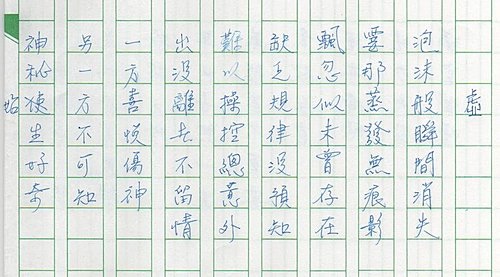 虛
泡沫般瞬間消失
霎那蒸發無痕影
飄忽似未曾存在
缺乏規律沒預知
難以操控總意外
出沒離去不留情
一方喜悅傷神
另一方不可知
神秘使生好奇
始